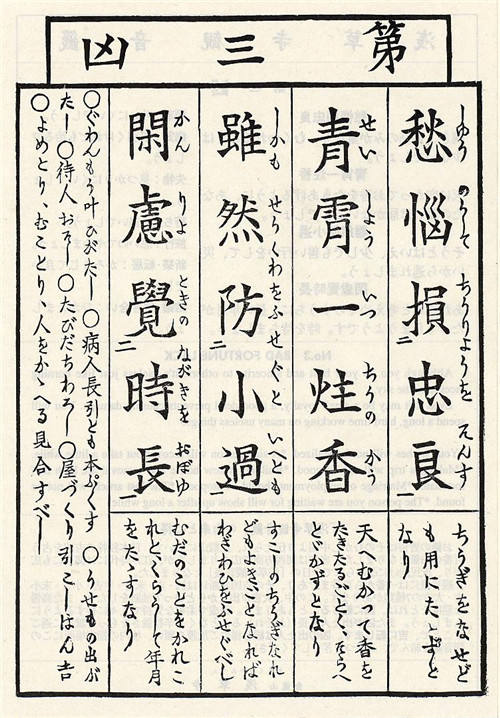 第三凶
愁悩損忠良
しゆうのうして ちうりようを そんす
ちうぎをなせども用にたゝずとなり
青霄一炷香
せい しよう いつ ちうの かう
天へむかつて香をたきたるごとくそらへとゞかずとなり
雖然防小過
しかも せうくわをふせぐと いへども
すこしのちうぎなれどもよきことなればわざわひをふせぐべし
閑慮覺時長
かん りよ ときの ながきを おぼゆ
むだのことをかれこれといらい 年月をたゝすなり
〇ぐわんもう叶ひがたし 〇病人長引とも本ぷくす 〇うせもの出がたし 〇待人おそし 〇たびだちわろし 〇屋づくり引こしはん吉 〇よめとり、むことり人をかゝへる見合すべし
No.3 BAD FORTUNE